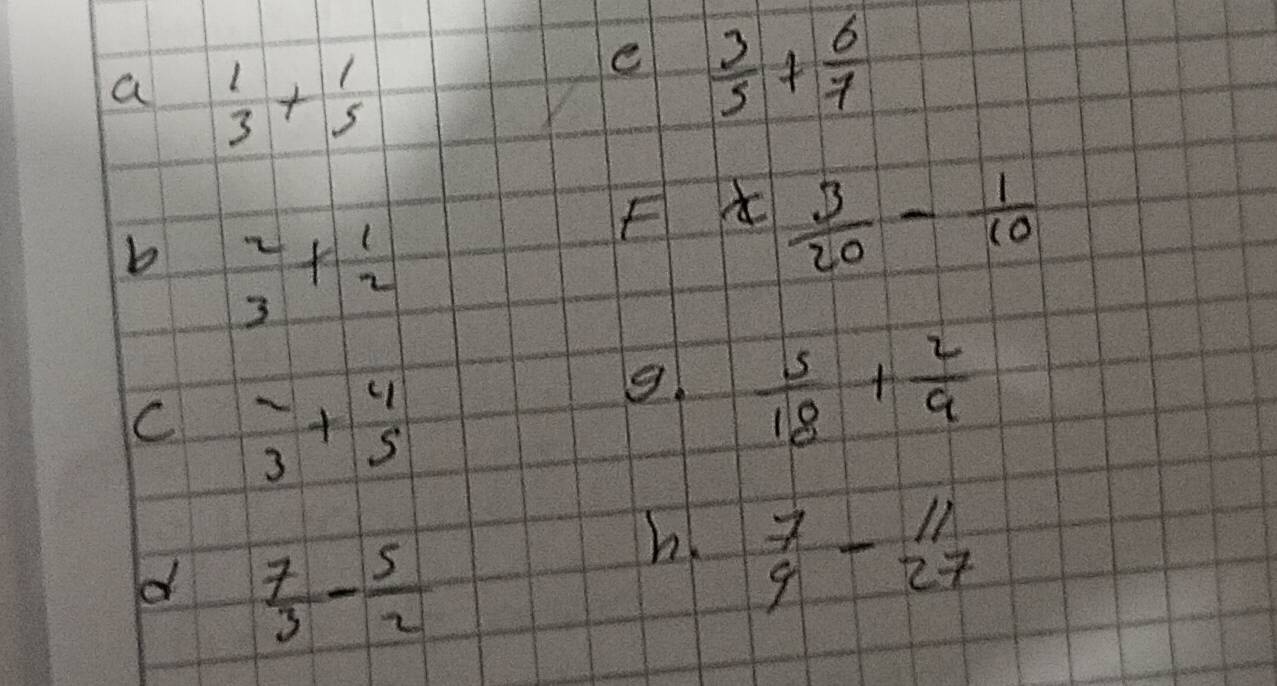 a 1/3 + 1/5
b 2/3 + 1/2
c 2/3 + 4/5
d 7/3 - 5/2
e 3/5 + 6/7
F 3/20 - 1/10
g. 5/18 + 2/9
h. 7/9 - 11/27